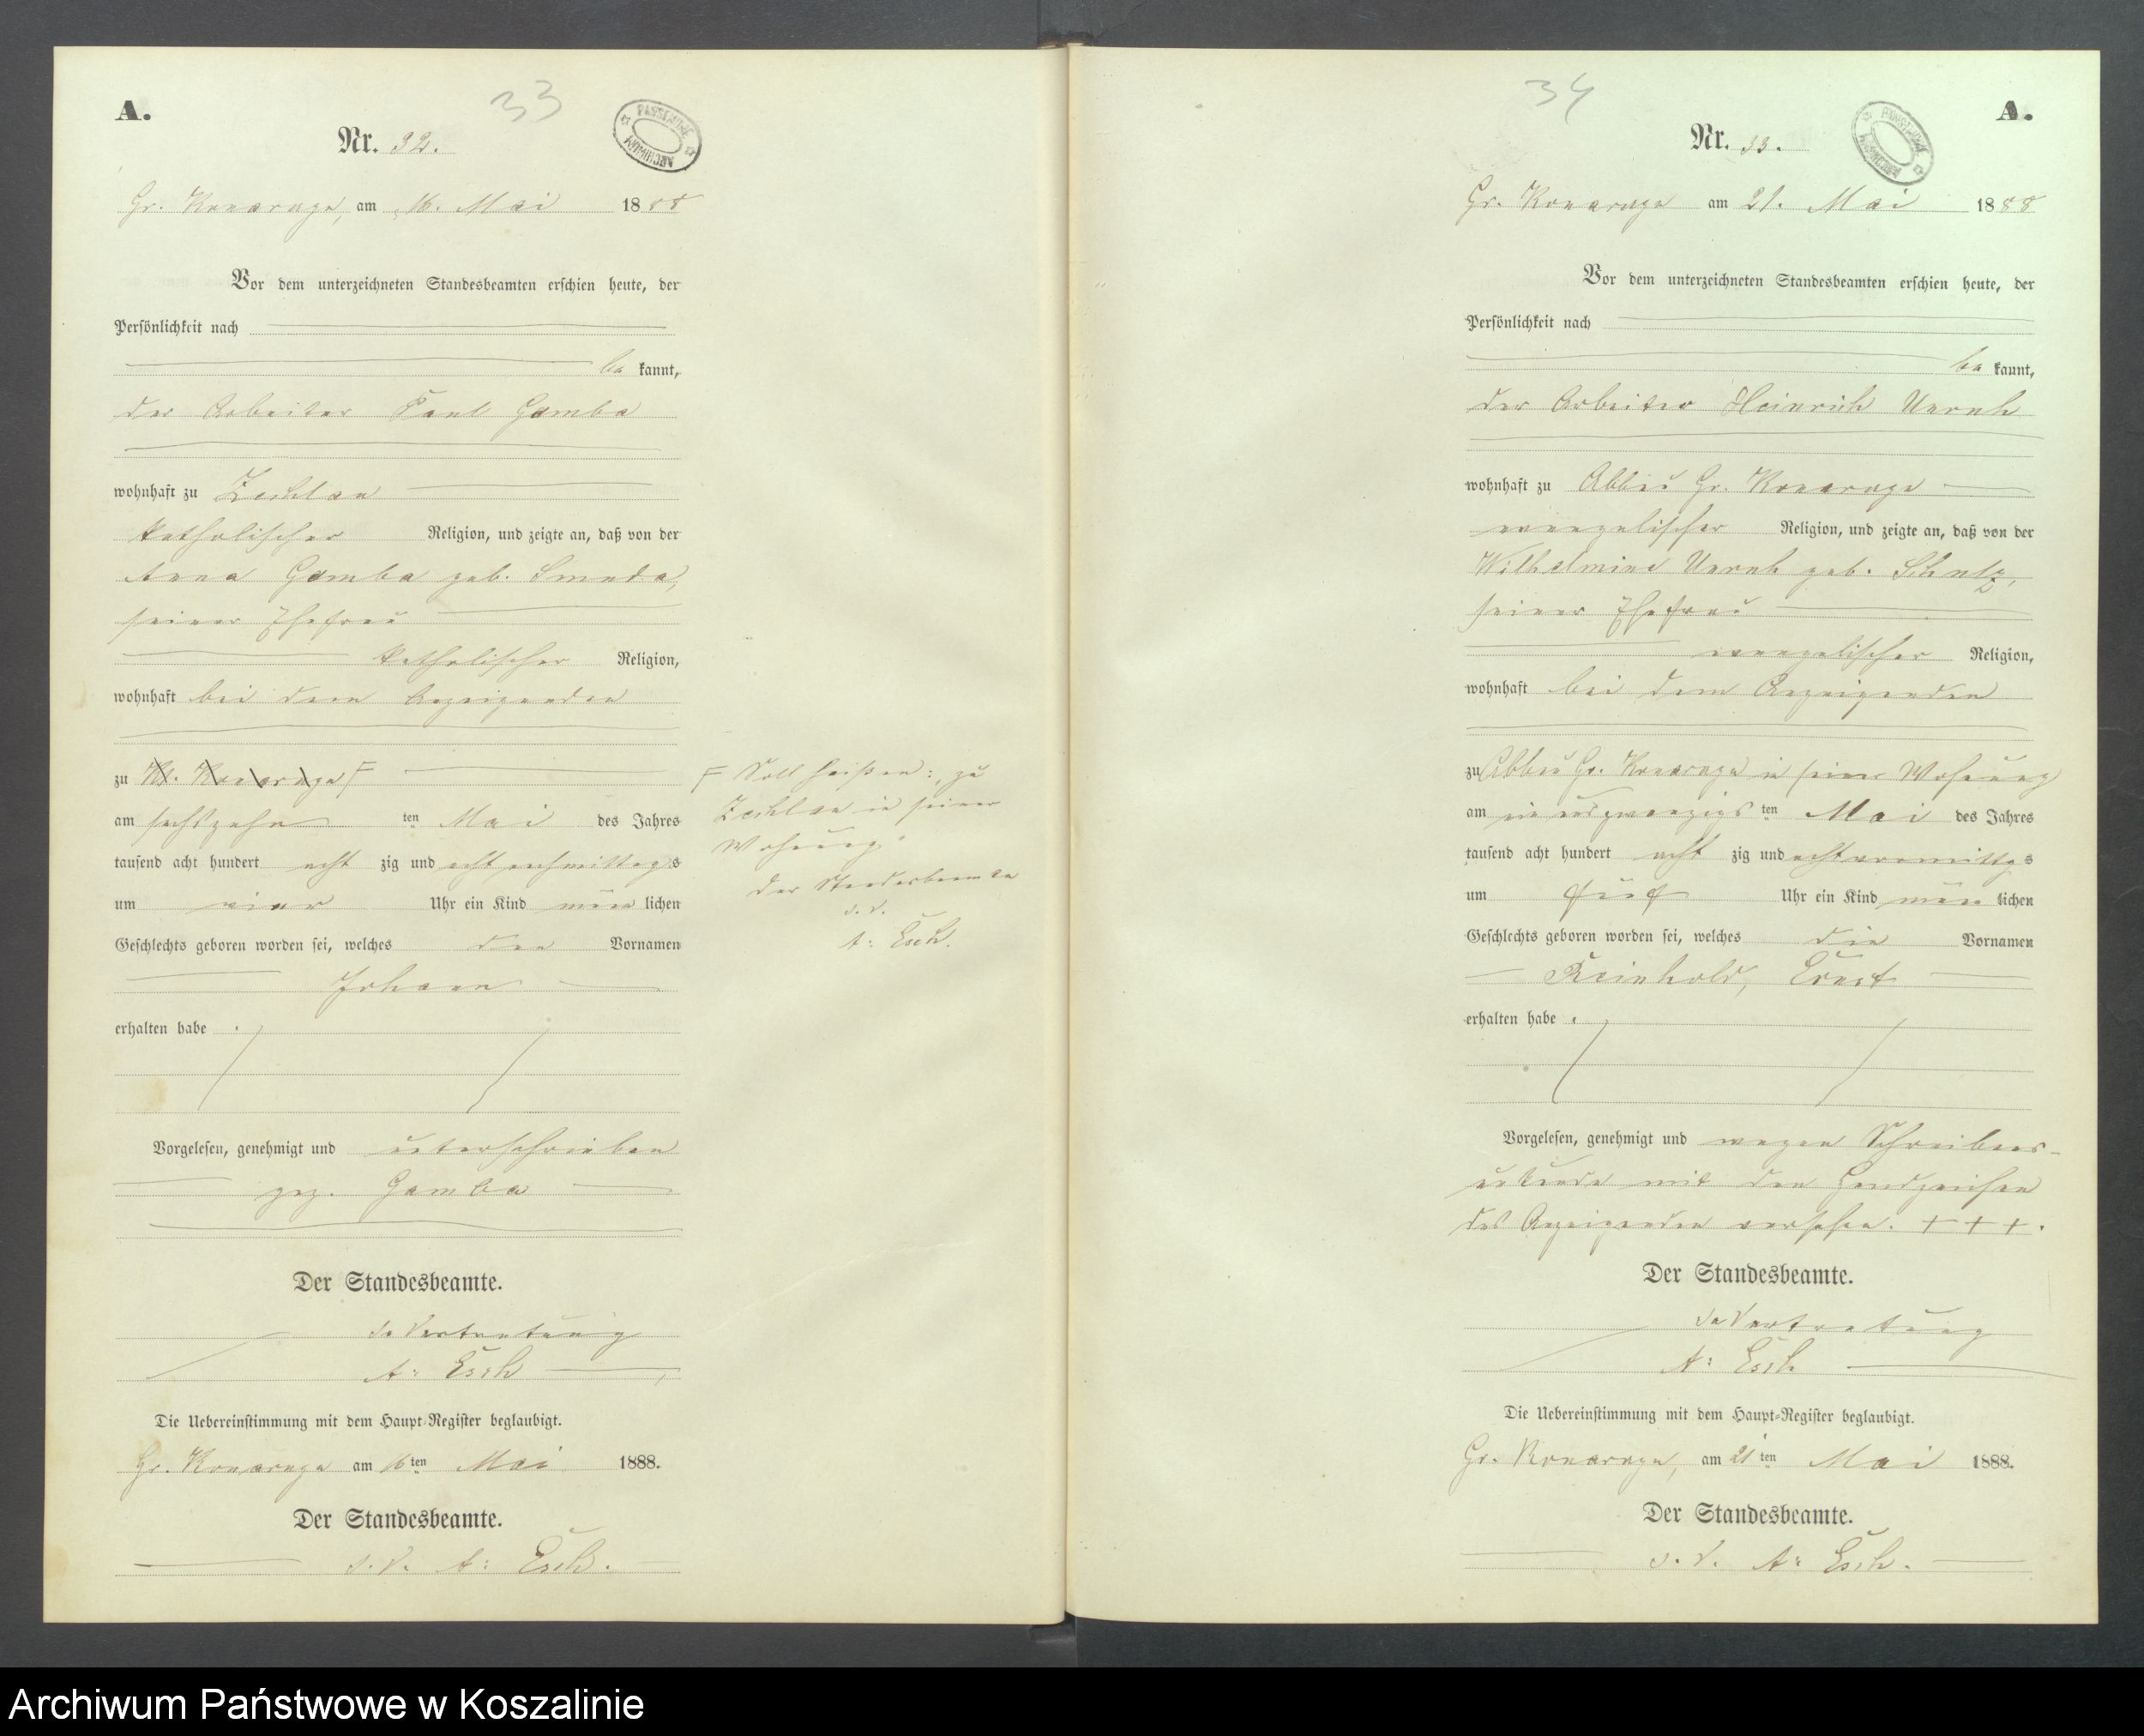 33
A.
PANSTWOWE ARCHIWUM
Nr. 32.
Gr. Konarczyn, am 16. Mai 1888
Vor dem unterzeichneten Standesbeamten erschien heute, der
Persönlichkeit nach
be kannt,
der Arbeiter Paul Gomba
wohnhaft zu Zechlau
katholischer Religion, und zeigte an, daß von der
Anna Gomba geb. Smuda,
seiner Ehefrau
katholischer Religion,
wohnhaft bei dem Anzeigenden
zu
am sechszehn ten Mai des Jahres
tausend acht hundert acht zig und acht nachmittags
um vier Uhr ein Kind män lichen
Geschlechts geboren worden sei, welches den Vornamen
Johann
erhalten habe.
Vorgelesen, genehmigt und unterschrieben
gez. Gomba
Der Standesbeamte.
In Vertretung
A: Esch
Die Uebereinstimmung mit dem Haupt-Register beglaubigt.
Gr. Konarczyn am 16 ten Mai 1888.
Der Standesbeamte.
I. V. A: Esch.
Soll heißen: zu
Zechlau in seiner
Wohnung
Der Standesbeamte
I. V.
A: Esch.
34
A.
PANSTWOWE ARCHIWUM
Nr. 33.
Gr. Konarczyn am 21. Mai 1888
Vor dem unterzeichneten Standesbeamten erschien heute, der
Persönlichkeit nach
be kannt,
der Arbeiter Heinrich
wohnhaft zu Abbau Gr. Konarczyn
evangelischer Religion, und zeigte an, daß von der
Wilhelmine geb. Schulz,
seiner Ehefrau
evangelischer Religion,
wohnhaft bei dem Anzeigenden
zu Abbau Gr. Konarczyn in seiner Wohnung
am ein und zwanzigs ten Mai des Jahres
tausend acht hundert acht zig und acht vormittgs
um fünf Uhr ein Kind män lichen
Geschlechts geboren worden sei, welches die Vornamen
Reinhold, Ernst
erhalten habe.
Vorgelesen, genehmigt und wegen Schreibens-
unkunde mit den Handzeichen
des Anzeigenden versehen. + + +.
Der Standesbeamte.
In Vertretung
A: Esch
Die Uebereinstimmung mit dem Haupt-Register beglaubigt.
Gr. Konarczyn, am 21 ten Mai 1888.
Der Standesbeamte.
I. V. A: Esch.
Archiwum Państwowe w Koszalinie